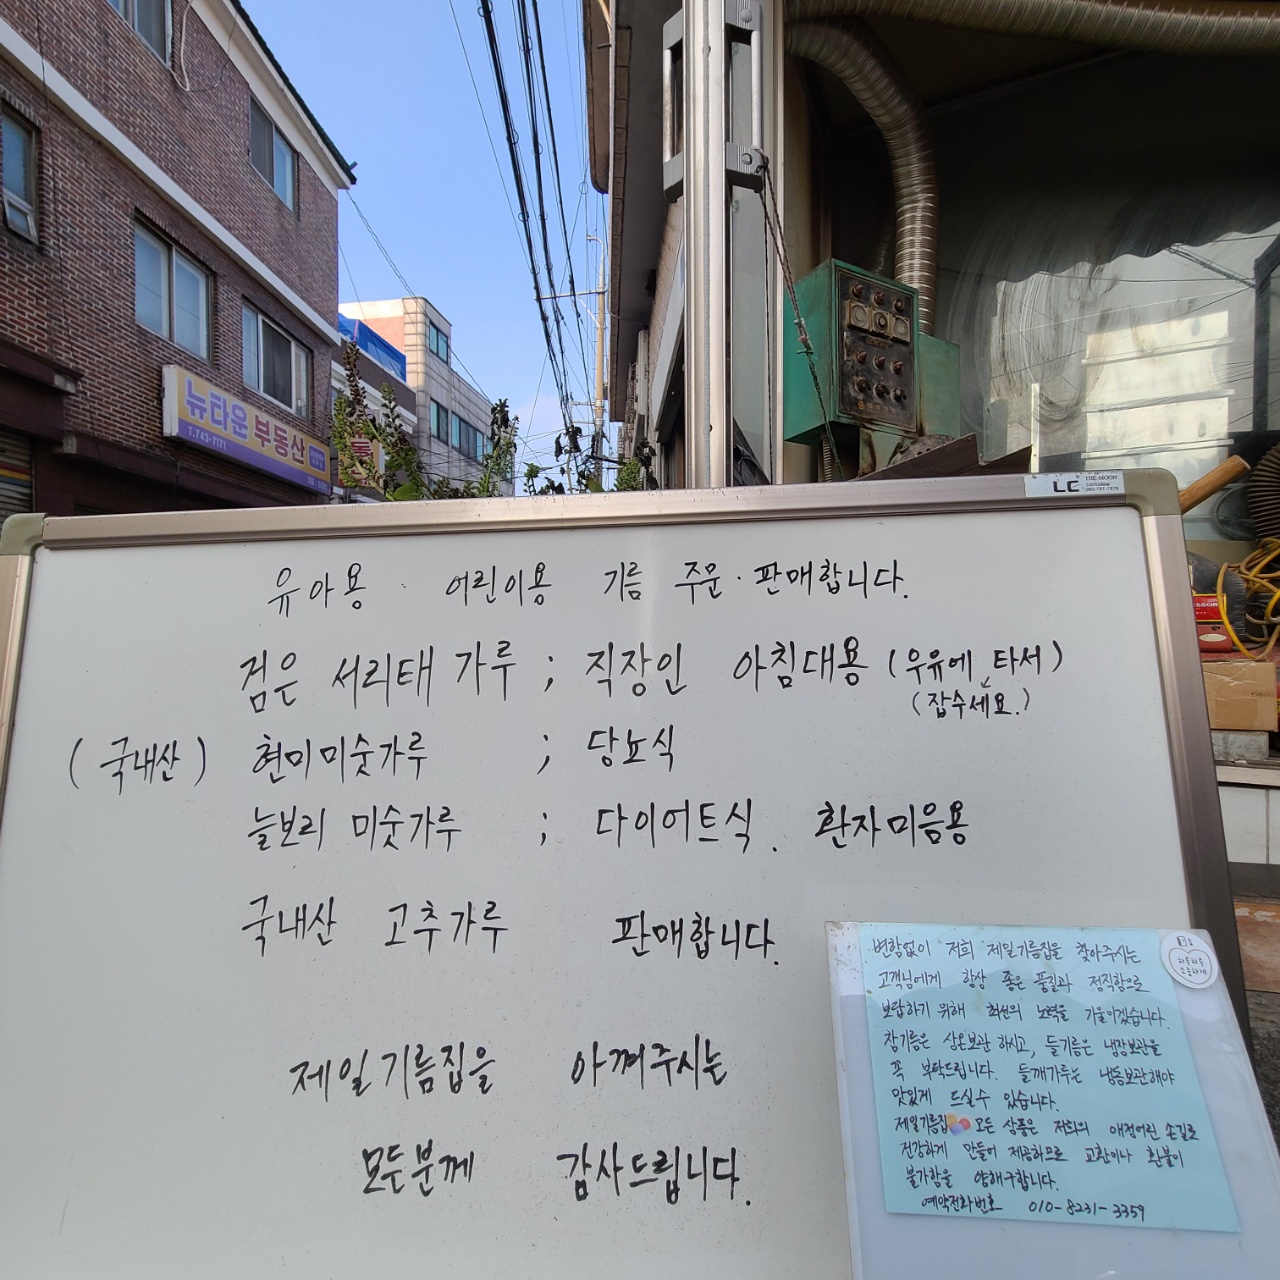 뉴타운 부동산
T.743-7171
LC THE-MOON
유아용 · 어린이용 기름 주문 · 판매합니다.
검은 서리태 가루 ; 직장인 아침대용 (우유에 타서)
(잡수세요.)
(국내산) 현미미숫가루 ; 당뇨식
늘보리 미숫가루 ; 다이어트식. 환자미음용
국내산 고추가루 판매합니다.
제일기름집을 아껴주시는
모든분께 감사드립니다.
변함없이 저희 제일기름집을 찾아주시는
고객님에게 항상 좋은 품질과 정직함으로
보답하기 위해 최선의 노력을 기울이겠습니다.
참기름은 상온보관 하시고, 들기름은 냉장보관을
꼭 부탁드립니다. 들깨가루는 냉동보관해야
맛있게 드실수 있습니다.
제일기름집 모든 상품은 저희의 애정어린 손길로
건강하게 만들어 제공하므로 교환이나 환불이
불가함을 양해구합니다.
예약전화번호 010-8231-3359